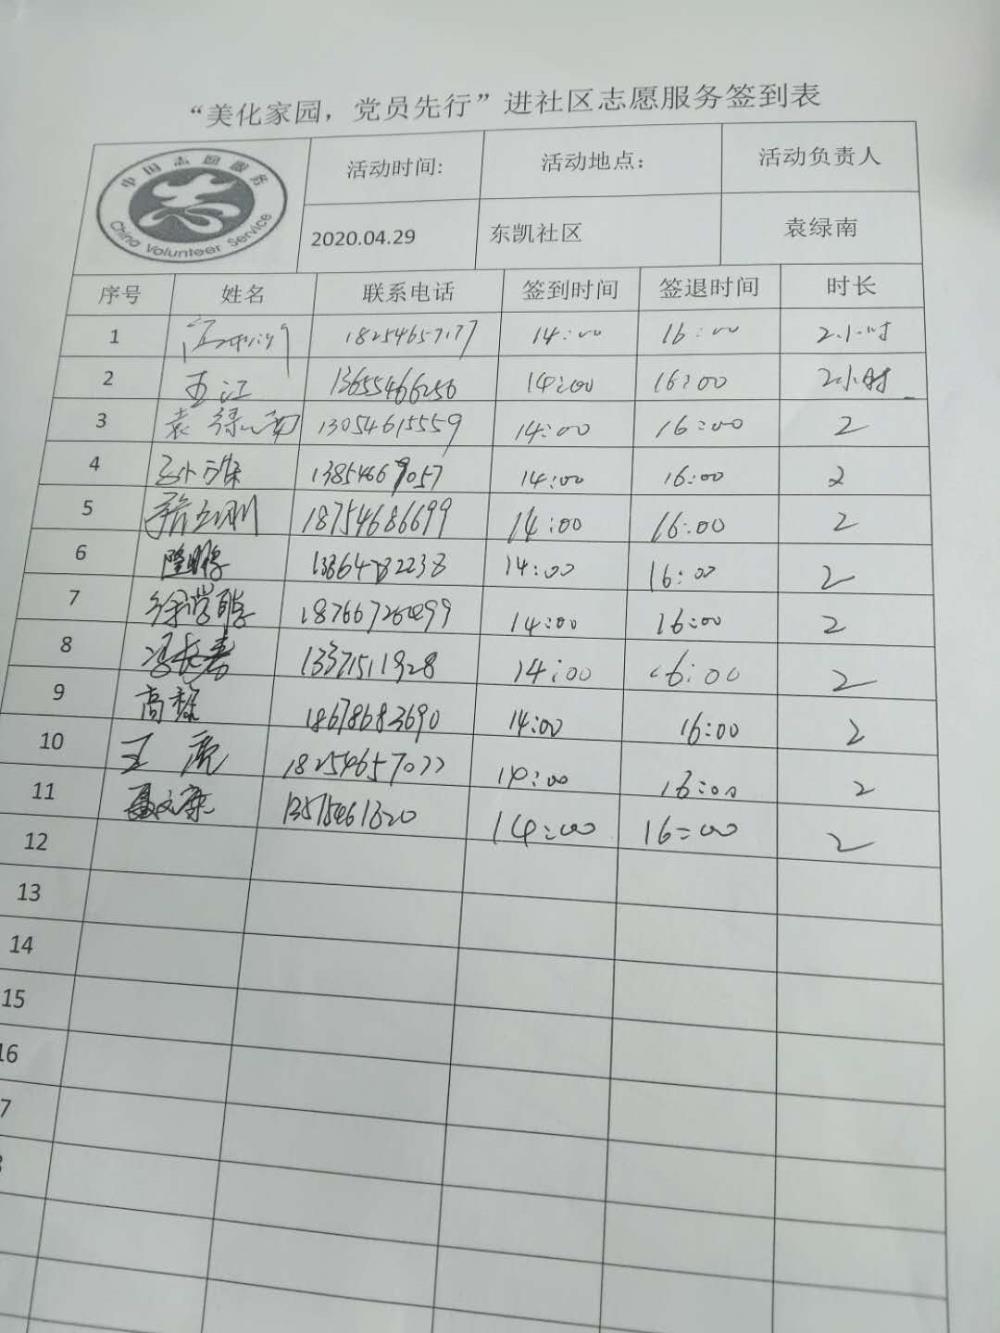 “美化家园，党员先行”进社区志愿服务签到表
中国志愿服务
China Volunteer Service
活动时间: 活动地点: 活动负责人
2020.04.29 东凯社区 袁绿南
序号 姓名 联系电话 签到时间 签退时间 时长
1 18254657177 14:00 16:00 2小时
2 王江 13655466256 14:00 16:00 2小时
3 袁绿南 13054615559 14:00 16:00 2
4 14:00 16:00 2
5 18754686699 14:00 16:00 2
6 隆鹏 14:00 16:00 2
7 18766726499 14:00 16:00 2
8 冯长春 13371511928 14:00 16:00 2
9 18678683690 14:00 16:00 2
10 王虎 18254657077 14:00 16:00 2
11 聂文康 14:00 16:00 2
12
13
14
15
16
7